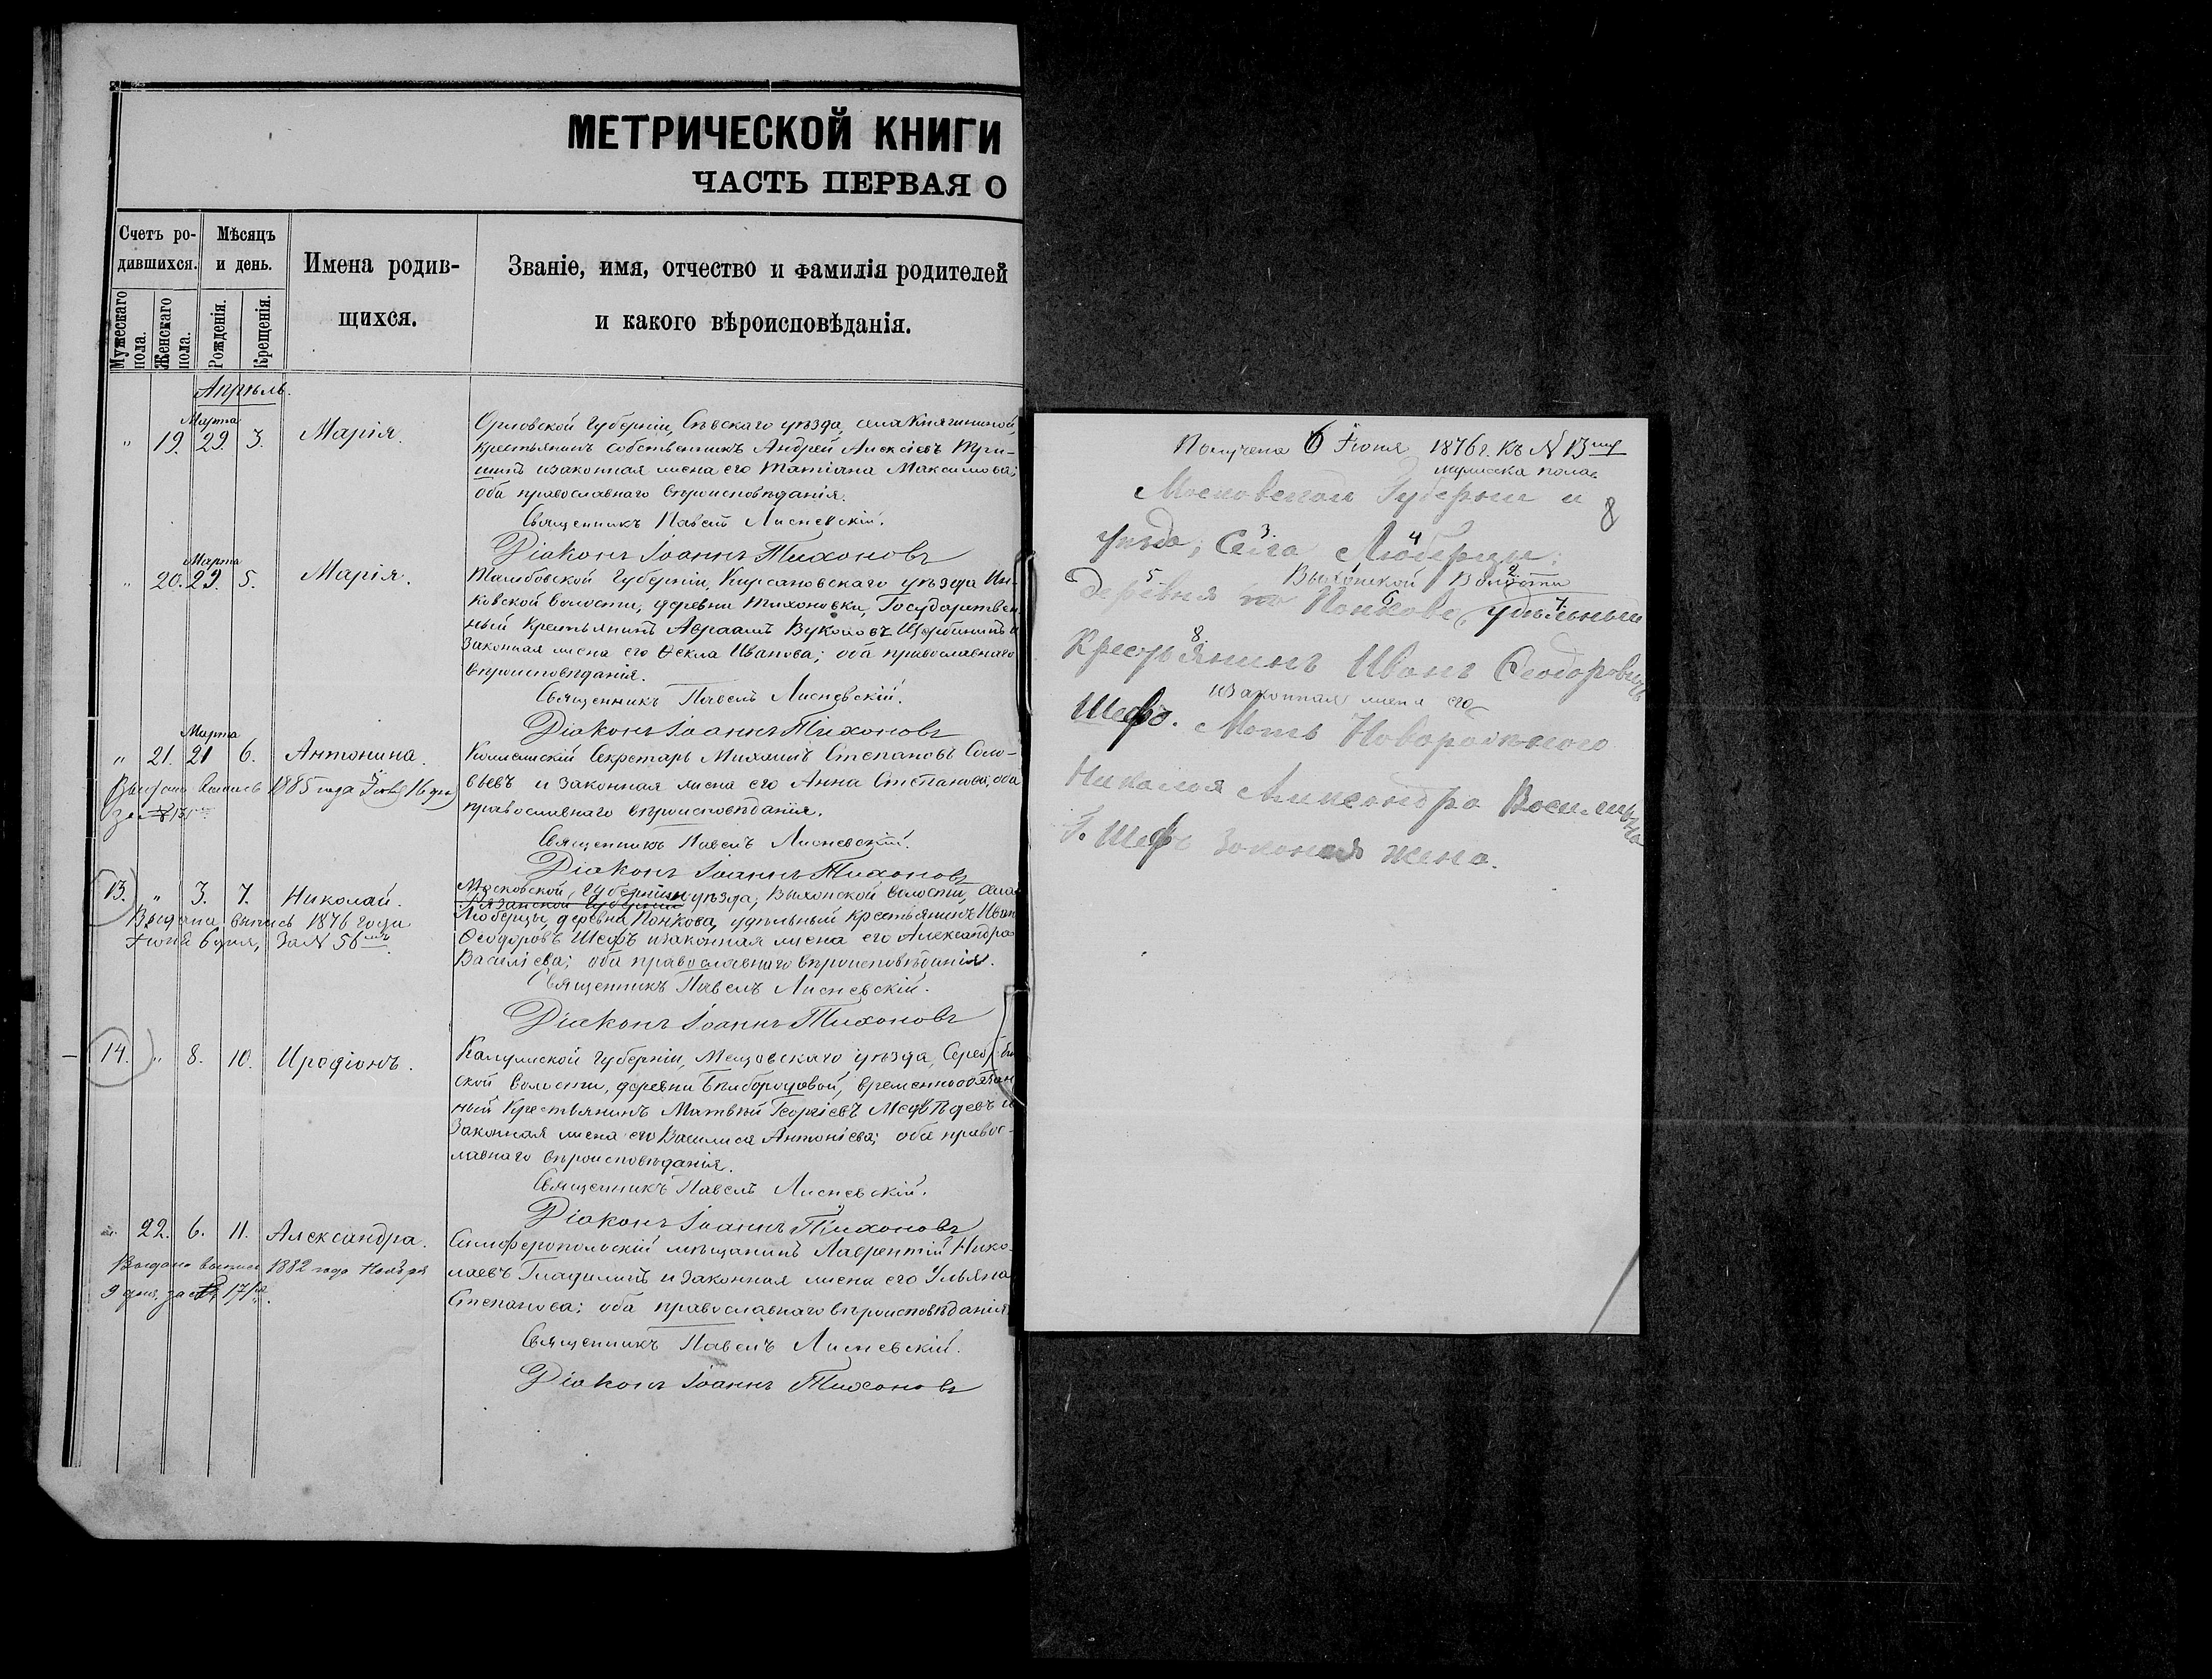 МЕТРИЧЕСКОЙ КНИГИ
ЧАСТЬ ПЕРВАЯ О
Счетъ ро-
дившихся.
Мѣсяцъ
и день.
Имена родив-
щихся.
Званіе, имя, отчество и фамилія родителей
и какого вѣроисповѣданія.
Мужескаго пола.
Женскаго пола.
Рожденія.
Крещенія.
Апрѣль.
Марта
" 19. 29 3. Марія.
Орловской Губерніи, Сѣвскаго уѣзда, села Княгининой,
крестьянинъ собственникъ Андрей Алексіевъ
и законная жена его Татіана Максимова;
оба православнаго вѣроисповѣданія.
Священникъ Павелъ Лисневскій.
Діаконъ Іоаннъ Тихоновъ
Марта
" 20. 29. 5. Марія.
Тамбовской Губерніи, Кирсановскаго уѣзда Ин-
ковской волости, деревни Тихоновки, Государствен-
ный крестьянинъ Авраамъ Вуколовъ Щербининъ и
законная жена его Ѳекла Иванова; оба православнаго
вѣроисповѣданія.
Священникъ Павелъ Лисневскій.
Діаконъ Іоаннъ Тихоновъ
Марта
" 21. 21 6. Антонина.
Коллежскій Секретарь Михаилъ Степановъ Соло-
вьевъ и законная жена его Анна Степанова, оба
православнаго вѣроисповѣданія.
Выдана выпись 1885 года 16 дня
Священникъ Павелъ Лисневскій.
Діаконъ Іоаннъ Тихоновъ
13. " 3. 7. Николай.
Выдана выпись 1876 года
Іюня 6 дня, за N 56
Московской Губерніи и уѣзда, Выхонской волости, села
Рязанской Губерніи
Люберцы, деревня Понкова, удѣльный крестьянинъ Иван
Ѳеодоровъ Шефъ и законная жена его Александра
Василіева; оба православнаго вѣроисповѣданія.
Священникъ Павелъ Лисневскій.
Діаконъ Іоаннъ Тихоновъ
14. " 8. 10. Иродіонъ.
Калужской Губерніи, Мещовскаго уѣзда,
ской волости, деревни временнообязан
ный крестьянинъ Матвѣй Георгіевъ Медвѣдевъ и
законная жена его Василиса Антоніева; оба правос-
лавнаго вѣроисповѣданія.
Священникъ Павелъ Лисневскій.
Діаконъ Іоаннъ Тихоновъ
22. 6. 11. Александра.
Выдана выпись 1882 года Ноября
9 дня, за
Симферопольскій мѣщанинъ Лаврентій Нико-
лаевъ и законная жена его Ульяна
Степанова; оба православнаго вѣроисповѣданія
Священникъ Павелъ Лисневскій.
Діаконъ Іоаннъ Тихоновъ
Получена 6 Іюня 1876 г. къ N 13
мужеска пола
Московской Губернии и
8
уѣзда, Села Люберцы:
3 4
Выхонской Волости
5 2
деревня Понкова, удѣльный
6 7
Крестьянинъ Иванъ Феодоровичъ
8
и законная жена его
Шефъ. Мать Новорожнного
Николая Александра Васильевна
Шефъ законная жена.